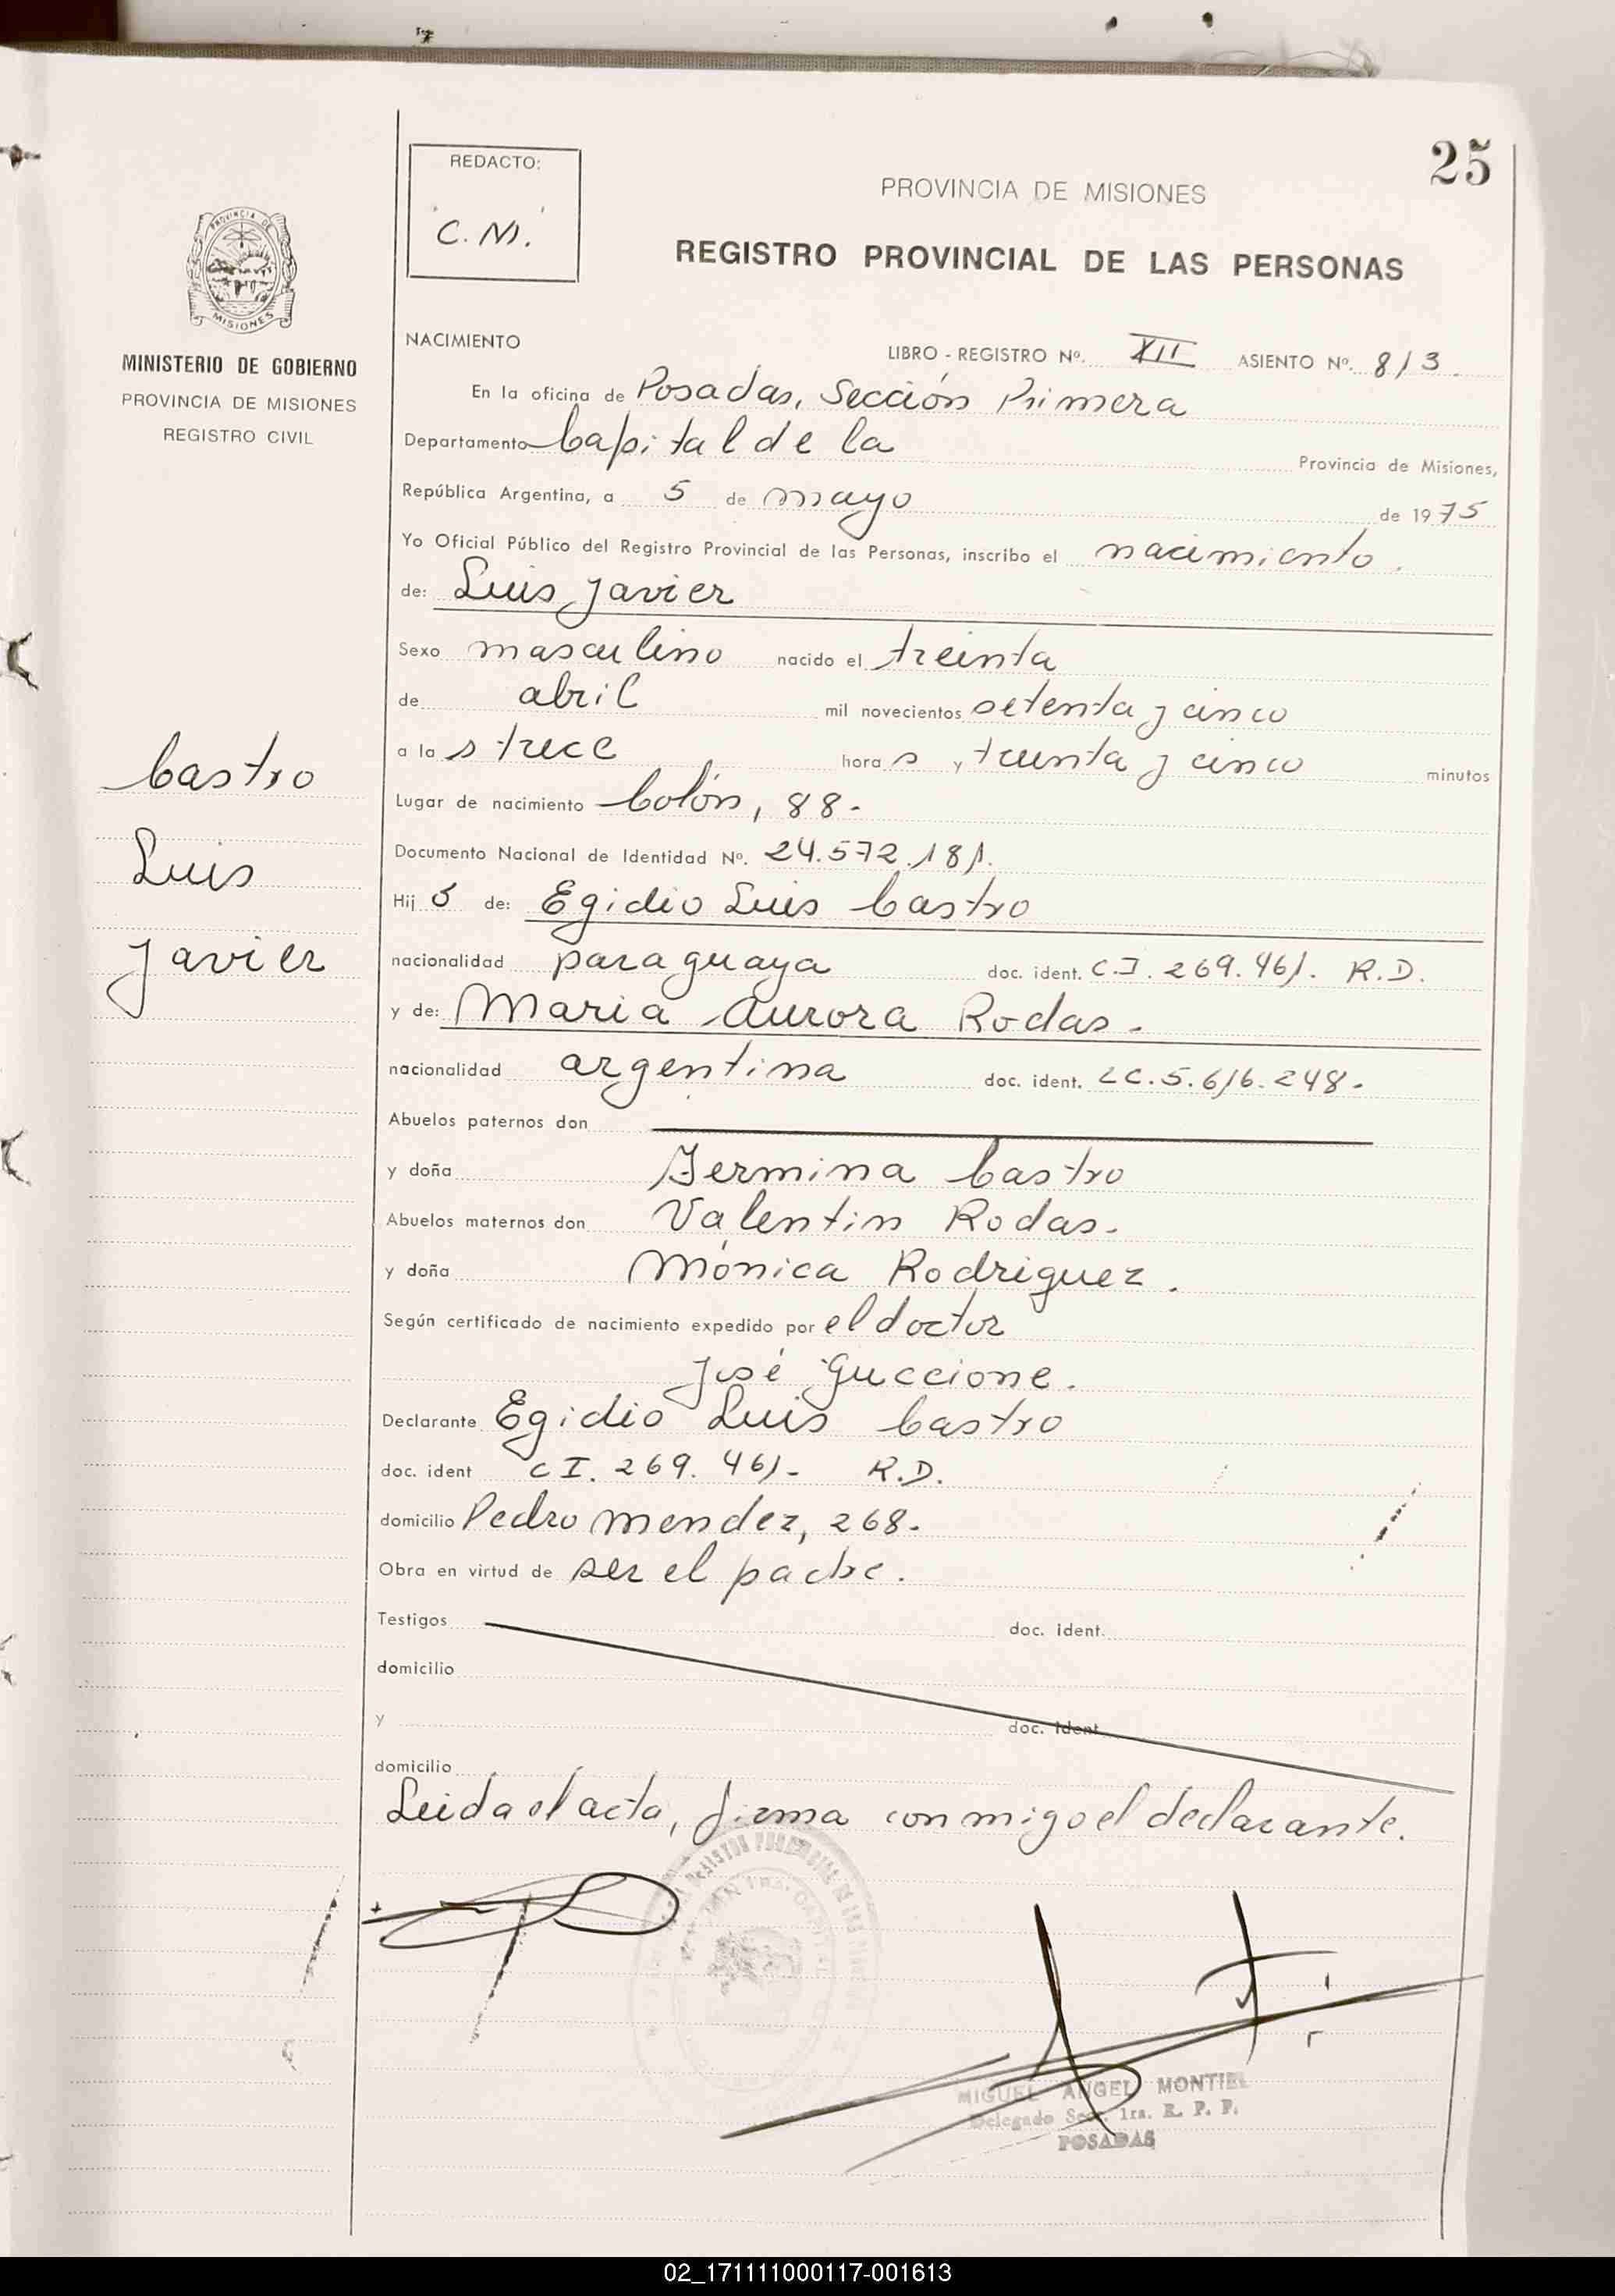 25
REDACTO:
C.M.
PROVINCIA DE MISIONES
REGISTRO PROVINCIAL DE LAS PERSONAS
PROVINCIA DE
MISIONES
MINISTERIO DE GOBIERNO
PROVINCIA DE MISIONES
REGISTRO CIVIL
NACIMIENTO
LIBRO - REGISTRO Nº. XII ASIENTO Nº. 813.
En la oficina de Posadas, Sección Primera
Departamento Capital de la Provincia de Misiones,
República Argentina, a 5 de mayo de 1975
Yo Oficial Público del Registro Provincial de las Personas, inscribo el nacimiento.
de: Luis Javier
Sexo masculino nacido el treinta
de abril mil novecientos setenta y cinco
a las trece horas y treinta y cinco minutos
Castro
Luis
Javier
Lugar de nacimiento Colón, 88.
Documento Nacional de Identidad Nº. 24.572.181.
Hijo de: Egidio Luis Castro
nacionalidad paraguaya doc. ident. C.I. 269.461. R.D.
y de: Maria Aurora Rodas.
nacionalidad argentina doc. ident. LC.5.616.248.
Abuelos paternos don
y doña Jermina Castro
Abuelos maternos don Valentin Rodas.
y doña Mónica Rodriguez.
Según certificado de nacimiento expedido por el doctor
José Guccione.
Declarante Egidio Luis Castro
doc. ident CI. 269.461. R.D.
domicilio Pedro Mendez, 268.
Obra en virtud de ser el padre.
Testigos doc. ident.
domicilio
y doc. ident.
domicilio
Leida el acta, firma conmigo el declarante.
MIGUEL ANGEL MONTIEL
Delegado Secc. 1ra. R. P. P.
POSADAS
02_171111000117-001613